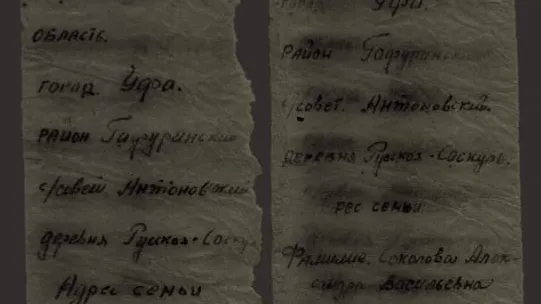 ОБЛАСТЬ.
город Уфа.
РАЙОН Гафурински
с/совет Антоновский
деревня Русская-Соскул
Адрес семьи
Уфа.
РАЙОН Гафуринский
с/совет. Антоновский.
деревня Русская-Соскуль.
рес семьи
Фамилия. Соколова Алек-
сандра Васильевна